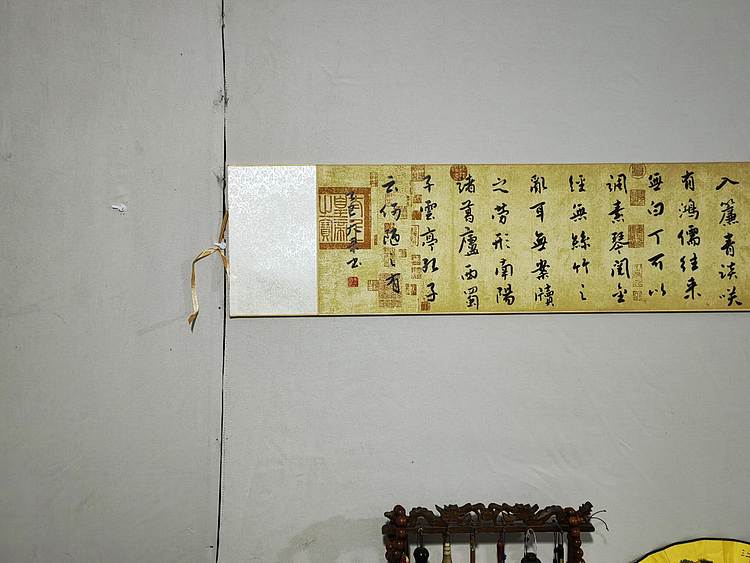 入簾青談咲
有鴻儒往来
無白丁可以
調素琴閱金
經無絲竹之
亂耳無案牘
之勞形南陽
諸葛廬西蜀
子雲亭孔子
云何陋之有
皇帝之寶